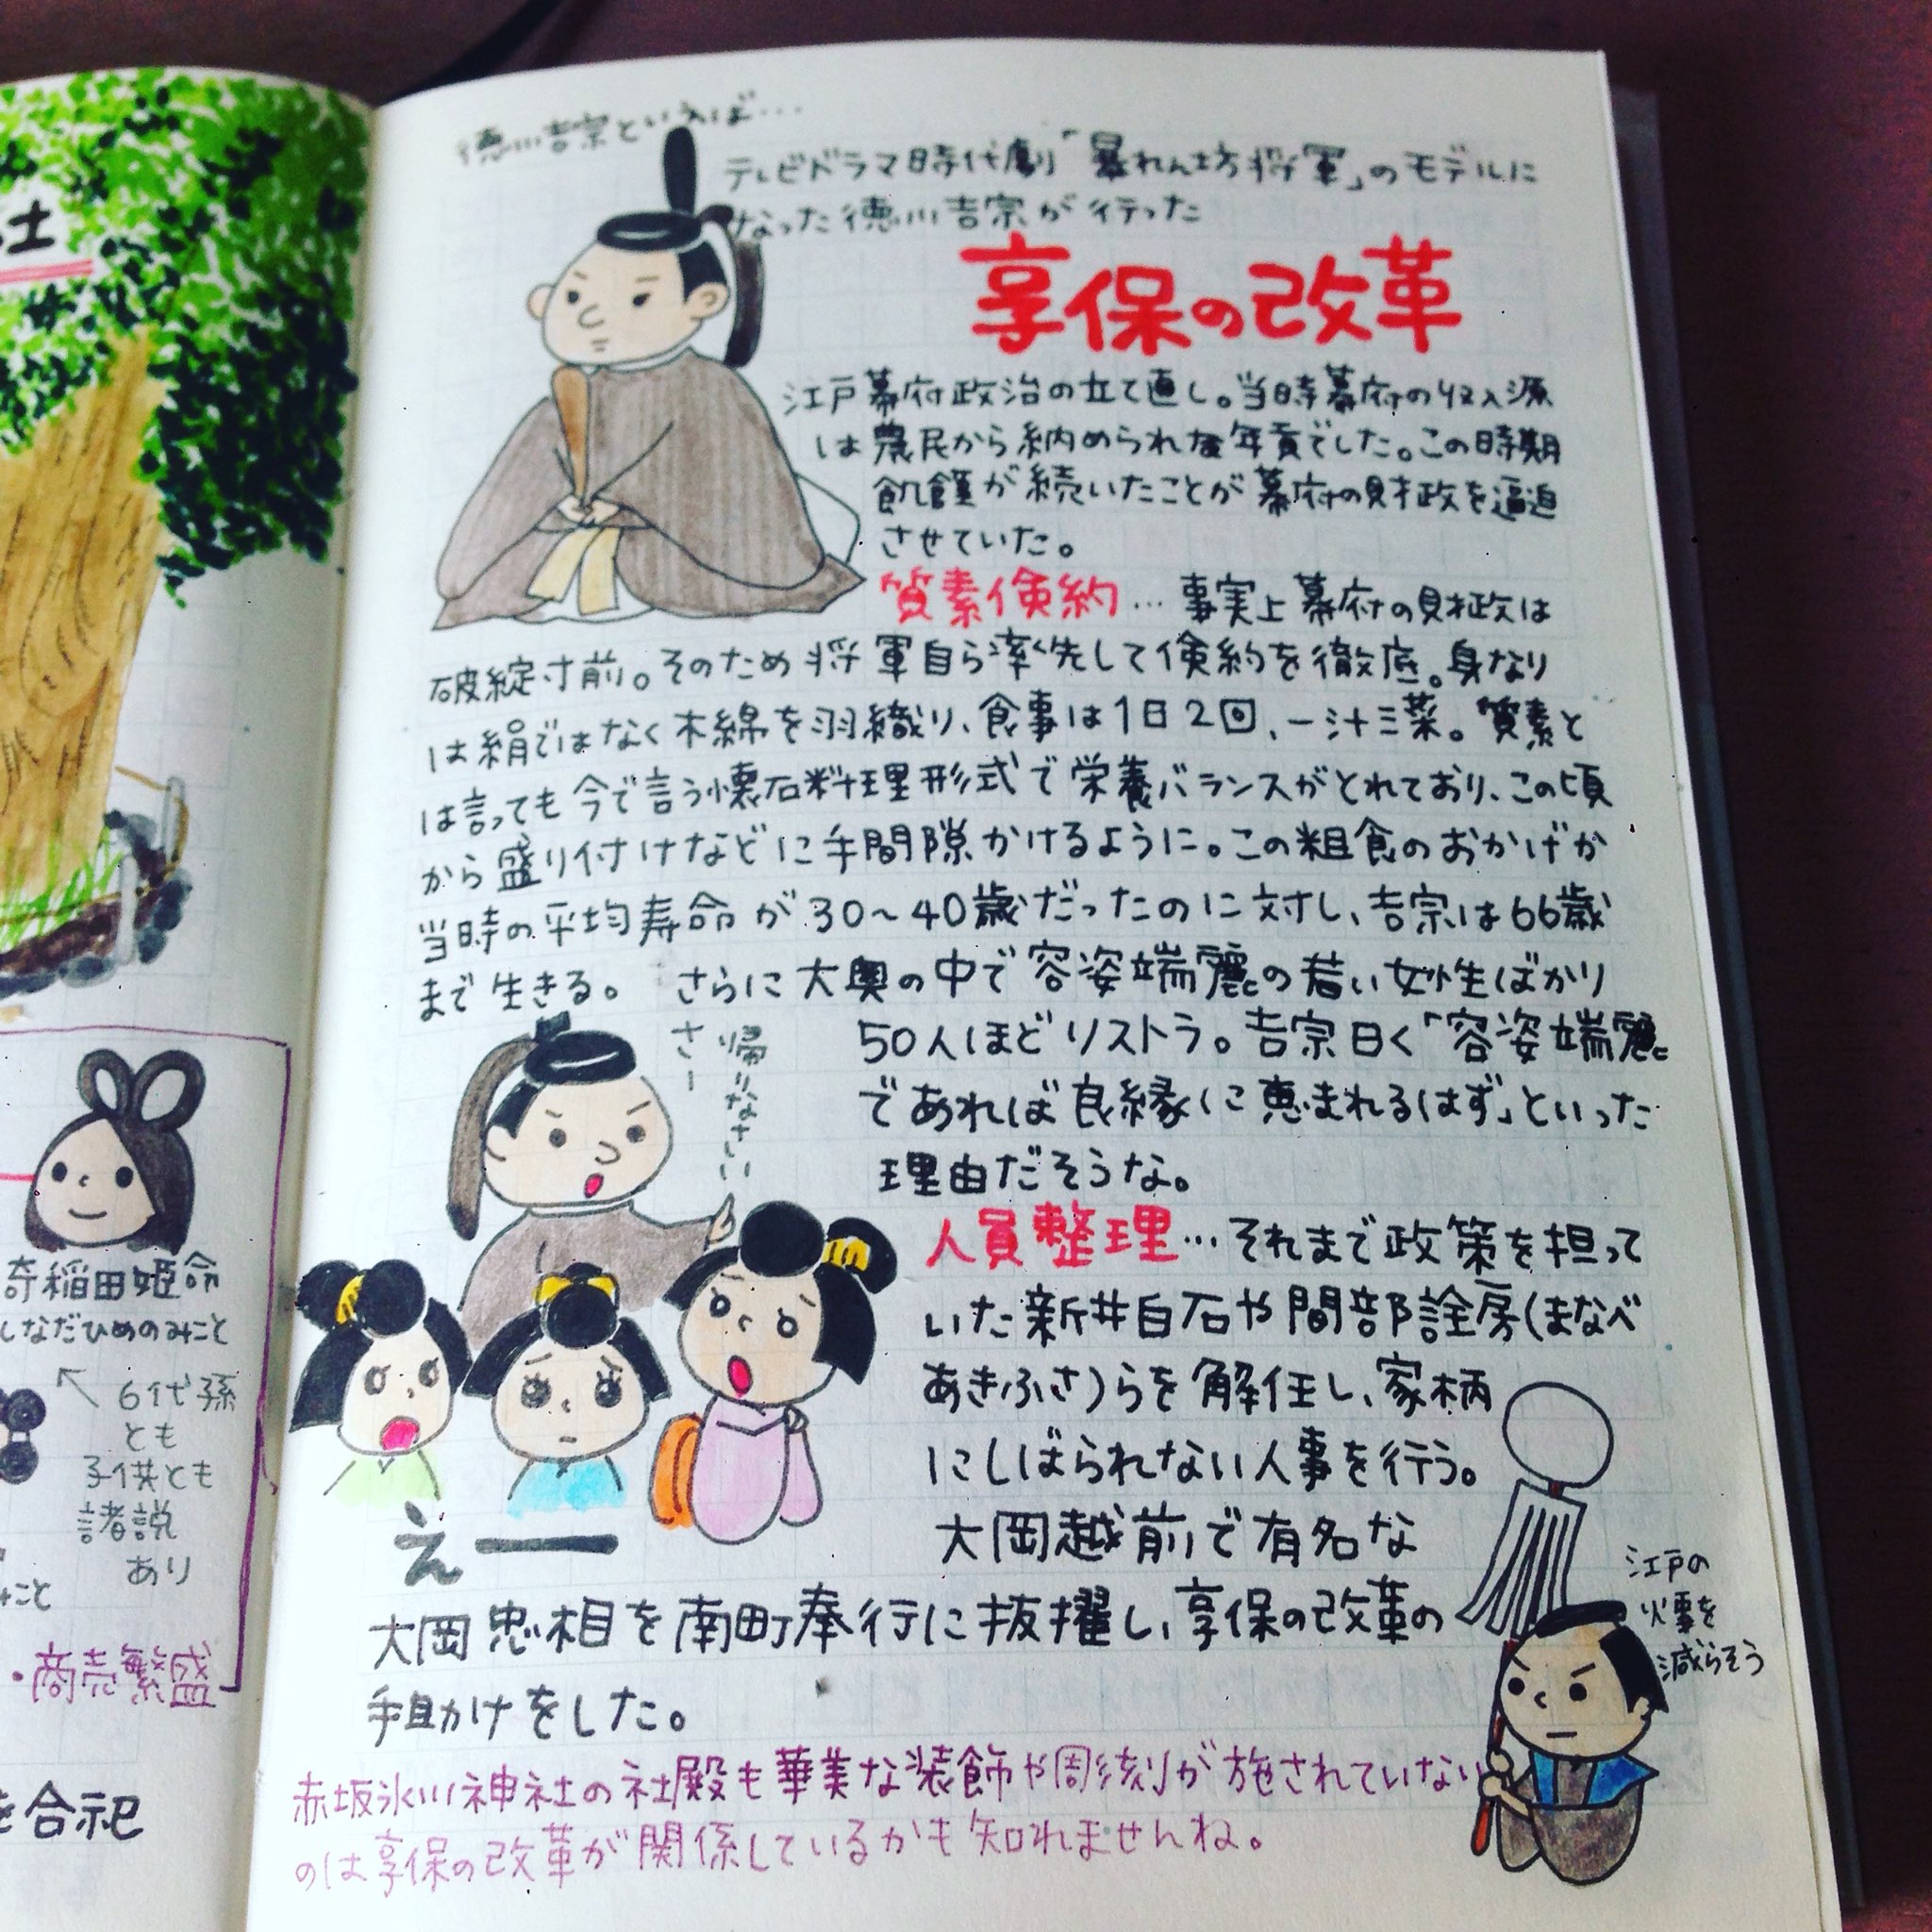 土
奇稲田姫命
しなだひめのみこと
6代孫
とも
子供とも
諸説
あり
こと
・商売繁盛
を合祀
徳川吉宗といえば…
テレビドラマ時代劇「暴れん坊将軍」のモデルに
なった徳川吉宗が行った
享保の改革
江戸幕府政治の立て直し。当時幕府の収入源
は農民から納められる年貢でした。この時期
飢饉が続いたことが幕府の財政を逼迫
させていた。
質素倹約…事実上幕府の財政は
破綻寸前。そのため将軍自ら率先して倹約を徹底。身なり
は絹ではなく木綿を羽織り、食事は1日2回、一汁三菜。質素と
は言っても今で言う懐石料理形式で栄養バランスがとれており、この頃
から盛り付けなどに手間隙かけるように。この粗食のおかげか
当時の平均寿命が30〜40歳だったのに対し、吉宗は66歳
まで生きる。 さらに大奥の中で容姿端麗の若い女性ばかり
50人ほどリストラ。吉宗曰く「容姿端麗
であれば良縁に恵まれるはず」といった
理由だそうな。
帰りなさい
さー
えー
人員整理…それまで政策を担って
いた新井白石や間部詮房(まなべ
あきふさ)らを解任し、家柄
にしばられない人事を行う。
大岡越前で有名な
大岡忠相を南町奉行に抜擢し、享保の改革の
手助けをした。
江戸の
火事を
減らそう
赤坂氷川神社の社殿も華美な装飾や彫刻が施されていない
のは享保の改革が関係しているかも知れませんね。